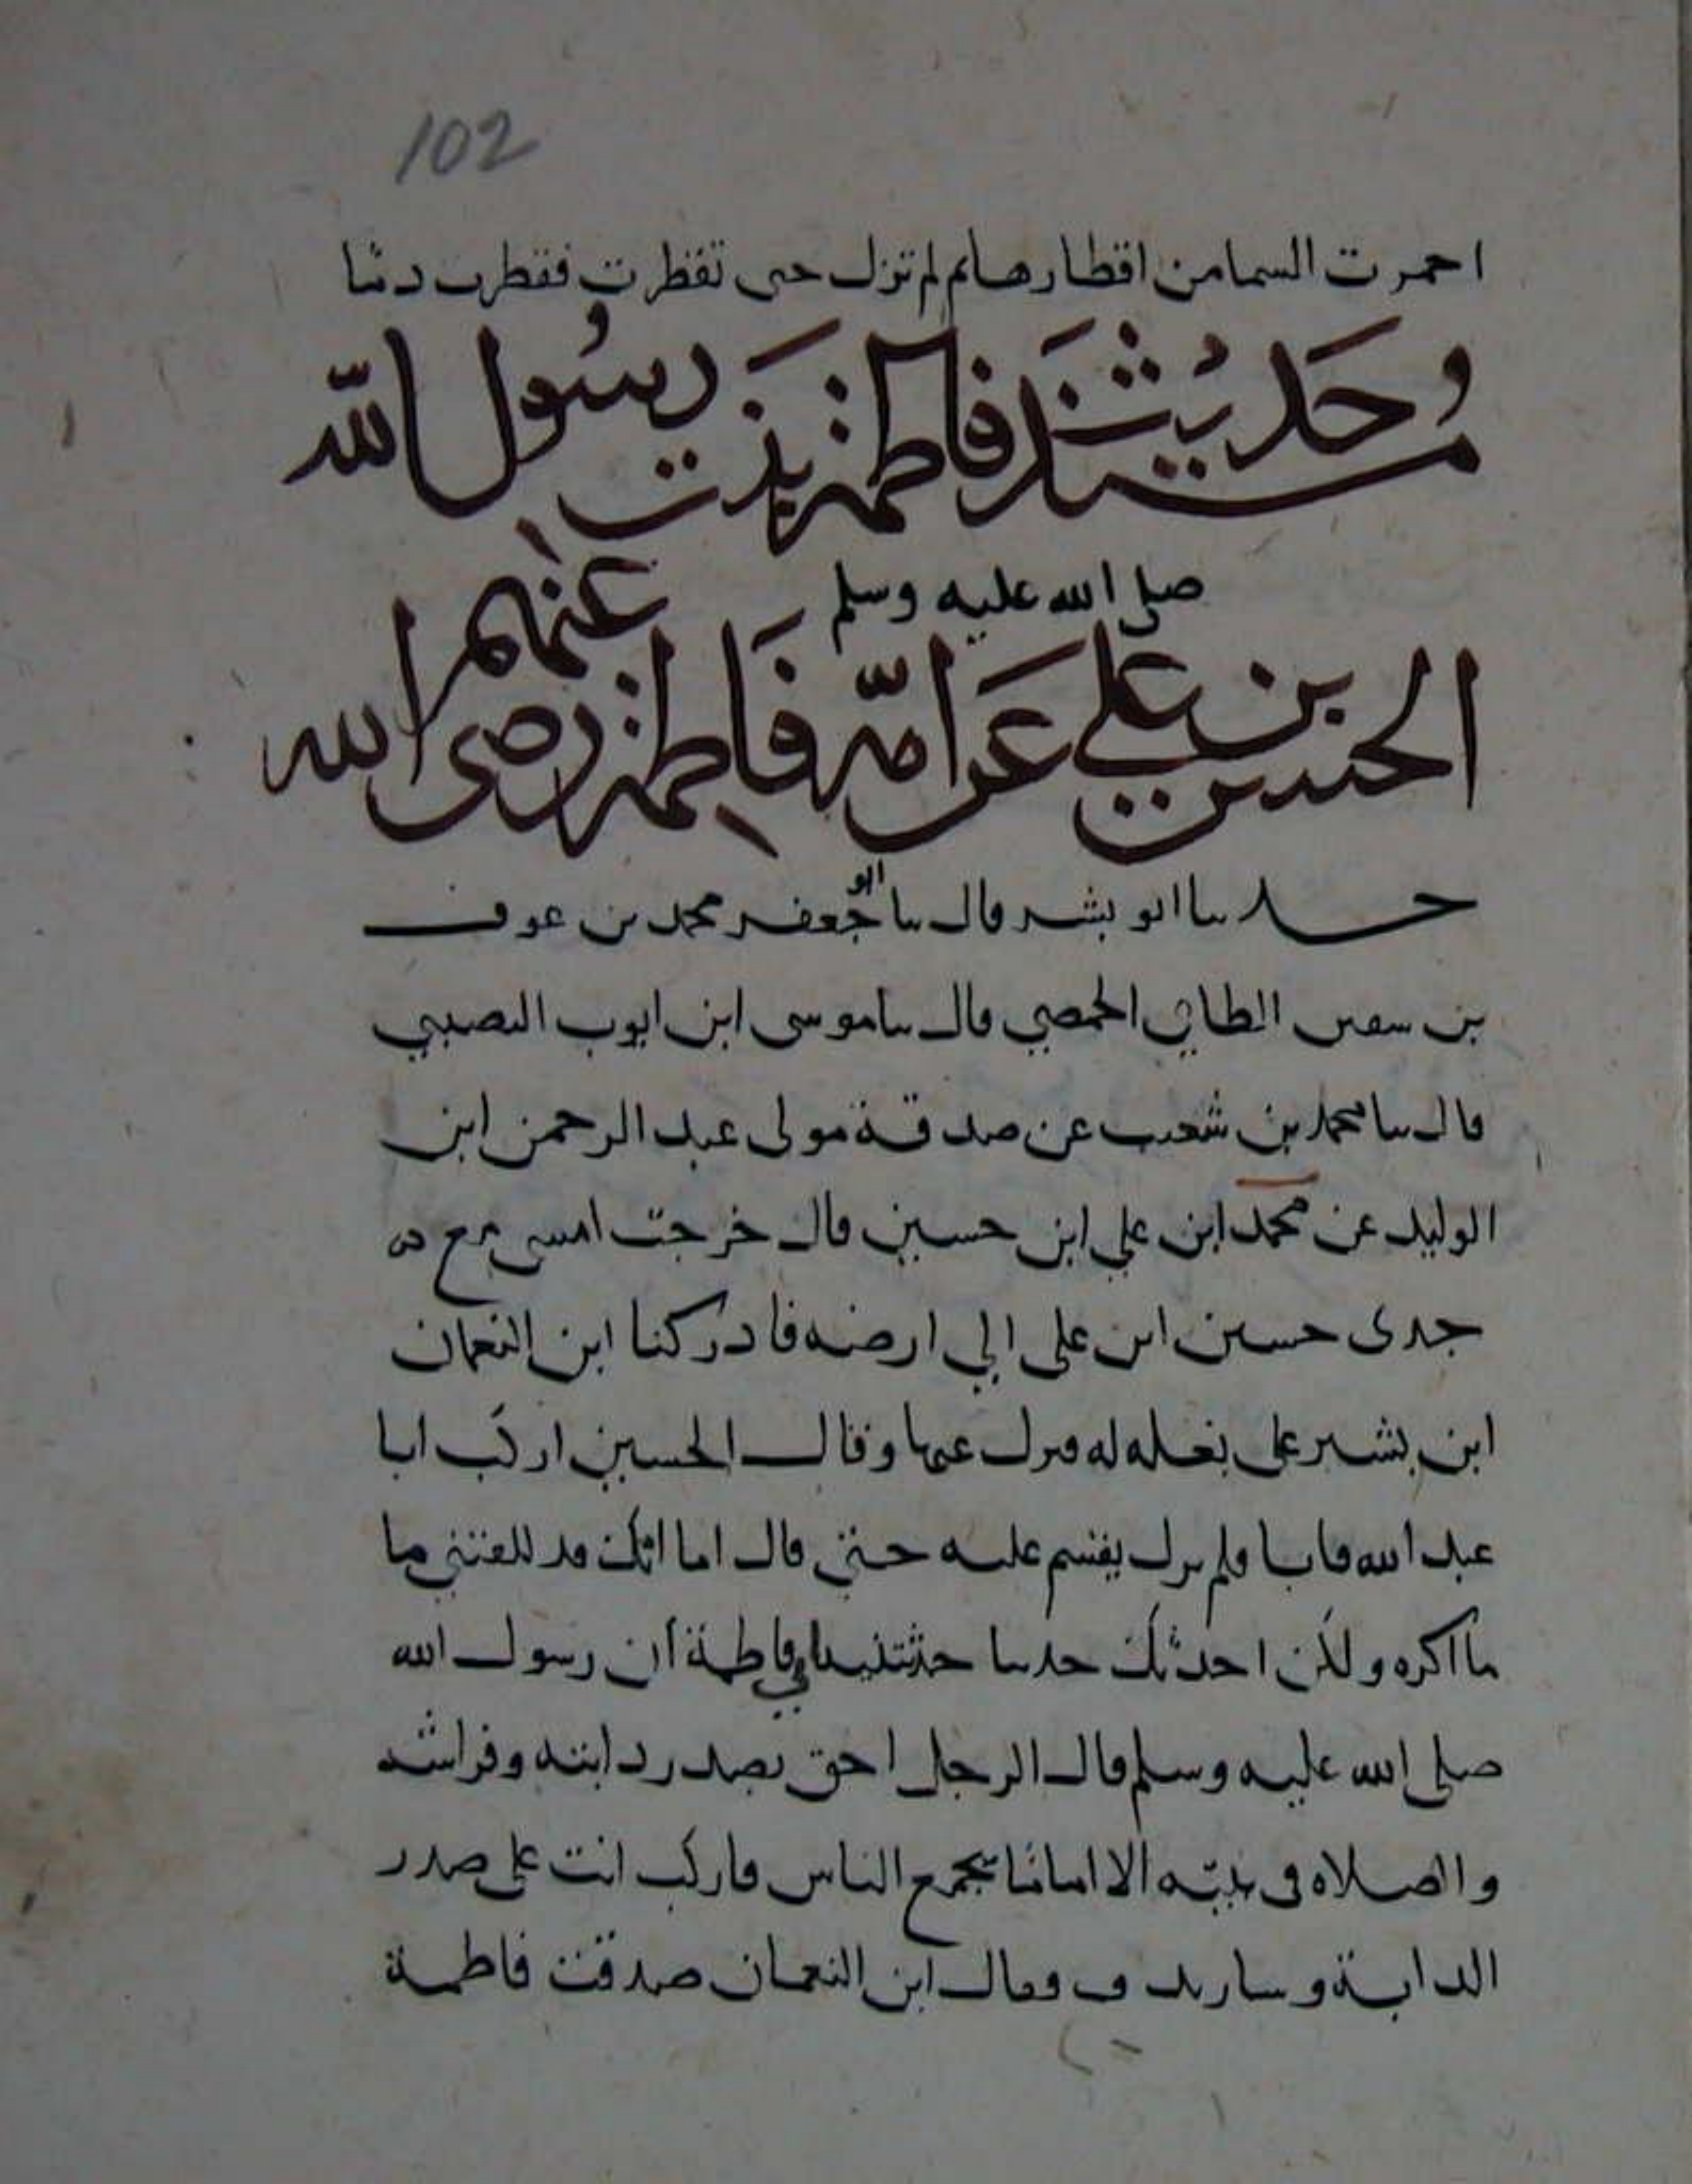 102
احمرت السما من اقطارها ثم لم تزل حتى تقطرت فقطرت دمًا
ومسند حديث فاطمة بنت رسول الله
صلى الله عليه وسلم
الحسين بن علي عن امه فاطمة رضى الله عنهم
حدثنا ابو بشر قال ثنا ابو جعفر محمد بن عوف
بن سفين الطاي الحمصي قال ثنا موسى ابن ايوب النصيبي
قال ثنا محمد بن شعيب عن صدقة مولى عبد الرحمن ابن
الوليد عن محمد ابن علي ابن حسين قال خرجت امسي مع
جدى حسين ابن على الي ارضه فادركنا ابن النعمان
ابن بشير على بغله له فنزل عنها وقال الحسين اركب ابا
عبد الله فابا فلم يزل يقسم عليه حتي قال اما انك قد كلفتني ما
ما اكره ولكن احدثك حديثا حدثتنيه امي فاطمة ان رسول الله
صلى الله عليه وسلم قال الرجل احق بصدر دابته وفراشه
والصلاه فى بيته الا امامًا يجمع الناس فاركب انت على صدر
الدابة وسار يدف وقال ابن النعمان صدقت فاطمة